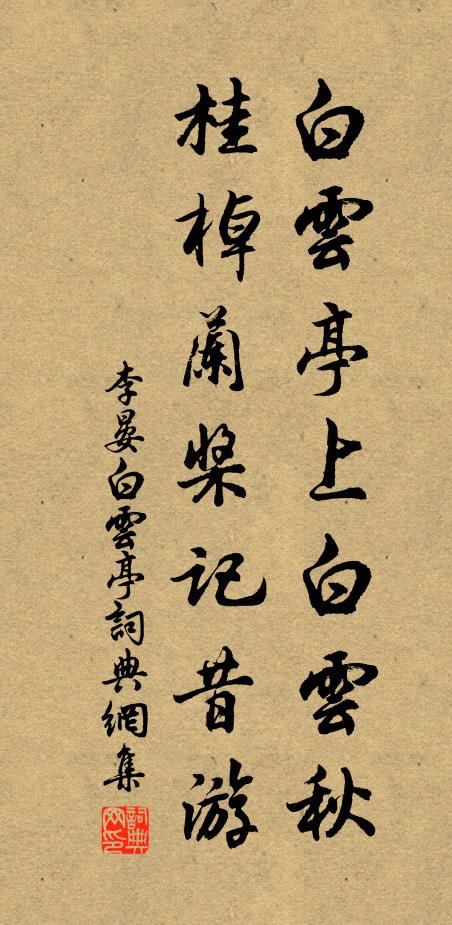 白雲亭上白雲秋
桂棹蘭槳記昔游
李晏白雲亭詞典網集
詞典网印